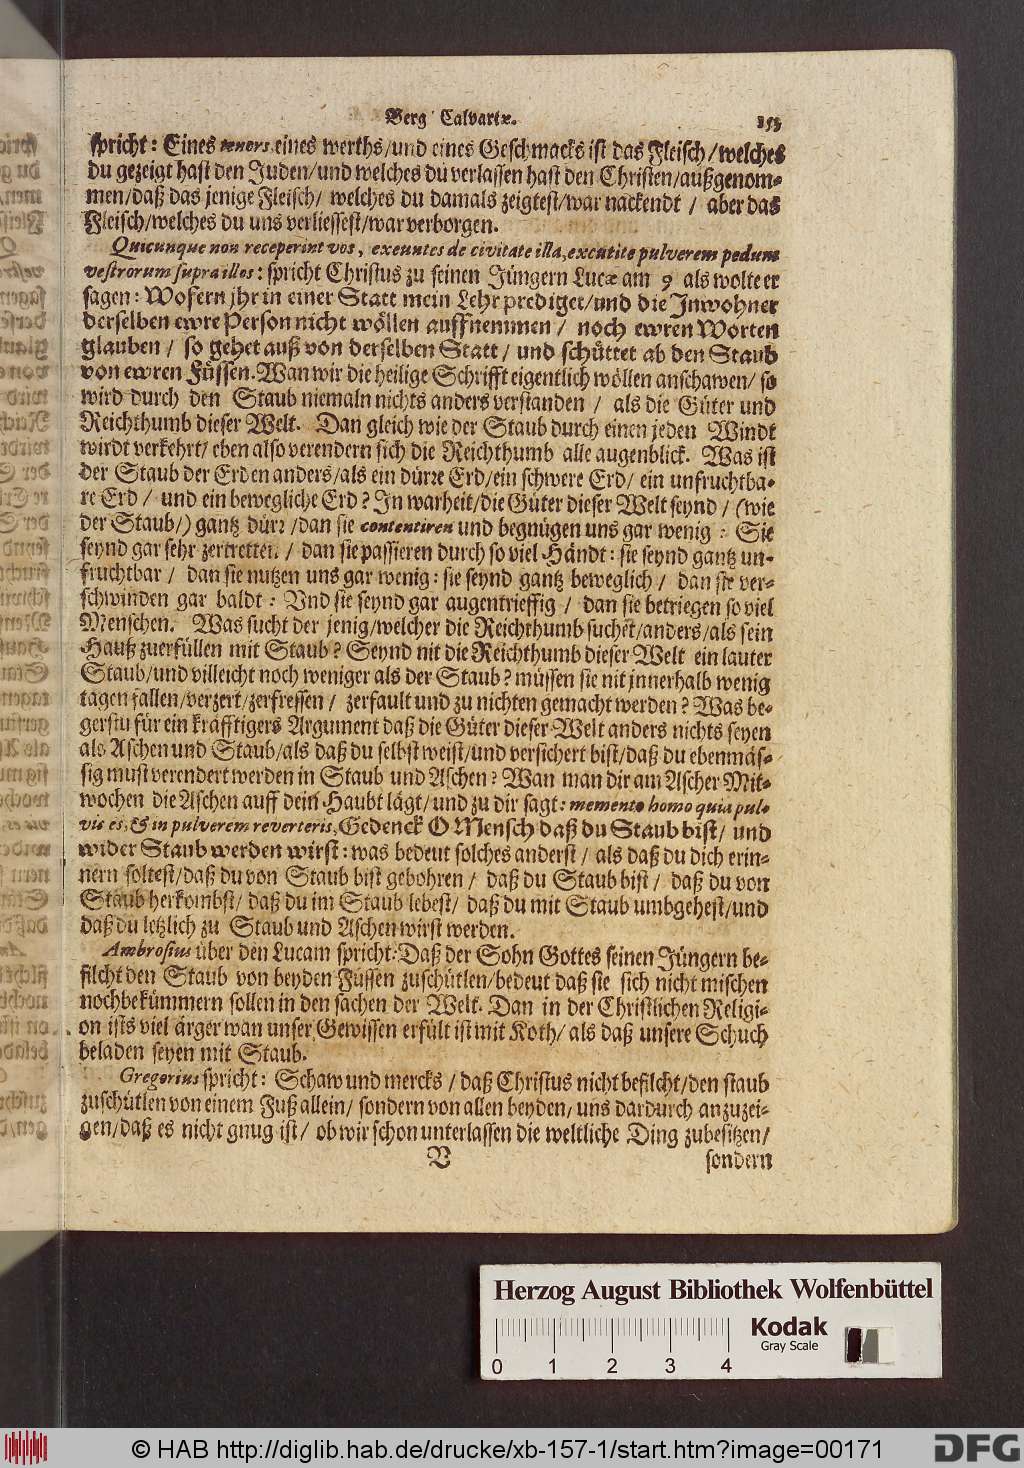 Berg Calvariæ. 153
spricht: Eines teners eines werths/und eines Geschmacks ist das Fleisch/welches
du gezeigt hast den Juden/und welches du verlassen hast den Christen/außgenom-
men/daß das jenige Fleisch/ welches du damals zeigtest/war nackendt / aber das
Fleisch/welches du uns verliessest/war verborgen.
Quicunque non receperint vos, exeuntes de civitate illa, excutite pulverem pedum
vestrorum supra illos: spricht Christus zu seinen Jüngern Lucæ am 9 als wolte er
sagen: Wofern jhr in einer Statt mein Lehr prediget/und die Inwohner
derselben ewre Person nicht wöllen auffnemmen / noch ewren Worten
glauben / so gehet auß von derselben Statt / und schüttet ab den Staub
von ewren Füssen. Wan wir die heilige Schrifft eigentlich wöllen anschawen/ so
wird durch den Staub niemaln nichts anders verstanden / als die Güter und
Reichthumb dieser Welt. Dan gleich wie der Staub durch einen jeden Windt
wirdt verkehrt/ eben also verendern sich die Reichthumb alle augenblick. Was ist
der Staub der Erden anders/als ein dürre Erd/ein schwere Erd/ ein unfruchtba-
re Erd / und ein bewegliche Erd? In warheit/die Güter dieser Welt seynd / (wie
der Staub/) gantz dürr /dan sie contentiren und begnügen uns gar wenig : Sie
seynd gar sehr zertretten / dan sie passieren durch so viel Händt: sie seynd gantz un-
fruchtbar / dan sie nutzen uns gar wenig: sie seynd gantz beweglich / dan sie ver-
schwinden gar baldt : Und sie seynd gar augentrieffig / dan sie betriegen so viel
Menschen. Was sucht der jenig/welcher die Reichthumb suchet/anders/als sein
Hauß zuerfüllen mit Staub? Seynd nit die Reichthumb dieser Welt ein lauter
Staub/und villeicht noch weniger als der Staub? müssen sie nit jnnerhalb wenig
tagen fallen/verzert/zerfressen / zerfault und zu nichten gemacht werden? Was be-
gerstu für ein kräfftigers Argument daß die Güter dieser Welt anders nichts seyen
als Aschen und Staub/als daß du selbst weist/und versichert bist/daß du ebenmäs-
sig must verendert werden in Staub und Aschen? Wan man dir am Ascher-Mit-
wochen die Aschen auff dein Haubt lägt/und zu dir sagt: memento homo quia pul-
vis es, & in pulverem reverteris, Gedenck O Mensch daß du Staub bist/ und
wider Staub werden wirst: was bedeut solches anderst / als daß du dich erin-
nern soltest/daß du von Staub bist gebohren / daß du Staub bist / daß du von
Staub herkombst/ daß du im Staub lebest/ daß du mit Staub umbgehest/und
daß du letzlich zu Staub und Aschen wirst werden.
Ambrosius über den Lucam spricht: Daß der Sohn Gottes seinen Jüngern be-
filcht den Staub von beyden Füssen zuschütlen/bedeut daß sie sich nicht mischen
noch bekümmern sollen in den sachen der Welt. Dan in der Christlichen Religi-
on ists viel ärger wan unser Gewissen erfült ist mit Koth/ als daß unsere Schuch
beladen seyen mit Staub.
Gregorius spricht: Schaw und mercks / daß Christus nicht befilcht/den staub
zuschütlen von einem Fuß allein/ sondern von allen beyden/ uns dardurch anzuzei-
gen/daß es nicht gnug ist/ ob wir schon unterlassen die weltliche Ding zubesitzen/
V sondern
Herzog August Bibliothek Wolfenbüttel
Kodak
Gray Scale
0 1 2 3 4
© HAB http://diglib.hab.de/drucke/xb-157-1/start.htm?image=00171
DFG